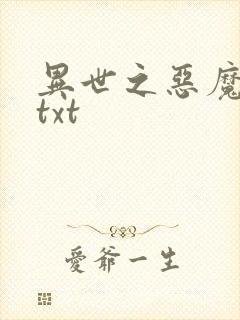 異世之惡魔
txt
愛爺一生